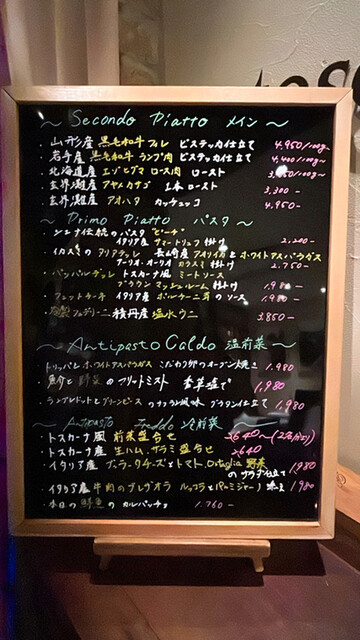 ~ Secondo Piatto メイン ~
・山形産 黒毛和牛 フィレ ビステッカ仕立て 4,950/100g~
・岩手産 黒毛和牛 ランプ肉 ビステッカ仕立て 4,400/100g~
・北海道産 エゾヒグマ ロース肉 ロースト /100g~
・玄界灘産 アヤメカサゴ 1本 ロースト 3,300-
・玄界灘産 アオハタ カチュッコ 4,950-
~ Primo Piatto パスタ ~
・シエナ伝統のパスタ "ピーチ"
イタリア産 サマートリュフ 掛け 2,200-
・イカスミの タリアテッレ 長崎産 アオリイカと ホワイトアスパラガス
アーリオ・オーリオ カラスミ 掛け 2,750-
・パッパルデッレ トスカーナ風 ミートソース
ブラウン マッシュルーム 掛け 1,980-
・フェットチーネ イタリア産 ポルチーニ茸の ソース 1,980-
フェデリーニ 積丹産 塩水ウニ 3,850-
~ Antipasto Caldo 温前菜 ~
・トリッパと ホワイトアスパラガス こだわり卵のオーブン焼き 1,980
・魚介と 野菜の フリットミスト 香草塩で 1,980
・ランプレドットと グリーンピースの 風味 グラタン仕立て 1,980
~ Antipasto Freddo 冷前菜 ~
・トスカーナ風 前菜盛合せ 2640~
・トスカーナ産 生ハム、サラミ 盛合せ 2640
・イタリア産 ブラータチーズと トマト、 野菜
のサラダ仕立て 1980
・イタリア産 牛肉の ブレザオラ ルッコラと パルミジャーノ 1980
・本日の 鮮魚 の カルパッチョ 1,760-